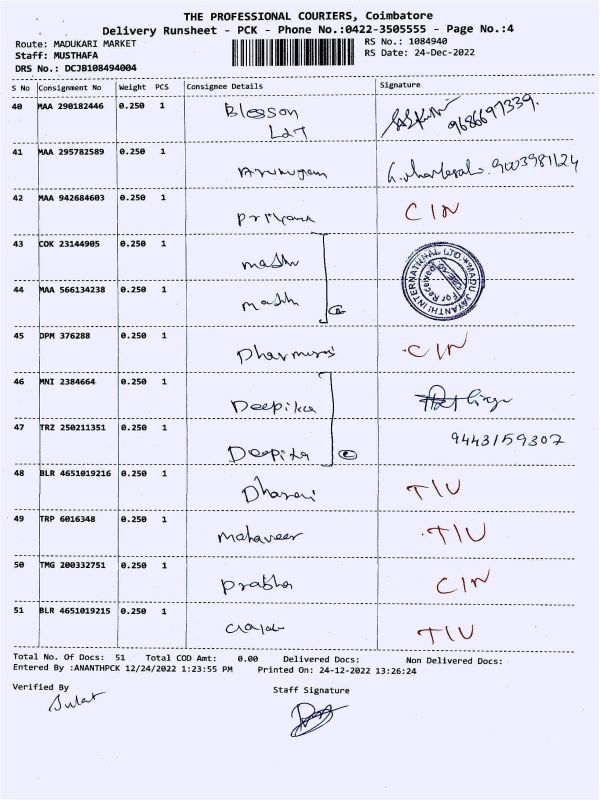 THE PROFESSIONAL COURIERS, Coimbatore
Delivery Runsheet - PCK - Phone No.:0422-3505555 - Page No.:4
Route: MADUKARI MARKET
RS No.: 1084940
Staff: MUSTHAFA
RS Date: 24-Dec-2022
DRS No.: DCJB108494004
S No Consignment No Weight PCS Consignee Details Signature
40 MAA 290182446 0.250 1 Blosson 9686697339.
Ldt
41 MAA 295782589 0.250 1 Arumugam 9003981124
42 MAA 942684603 0.250 1 Priyanka CIN
43 COK 23144905 0.250 1 mashu
MADU JAYANTHI INTERNATIONAL LTD. * For Received
44 MAA 566134238 0.250 1 mashu
45 DPM 376288 0.250 1 CIN
46 MNI 2384664 0.250 1 Deepika
47 TRZ 250211351 0.250 1 Deepika 9443159307
48 BLR 4651019216 0.250 1 Dharani TIU
49 TRP 6016348 0.250 1 Mahaveer TIU
50 TMG 200332751 0.250 1 Prabha CIN
51 BLR 4651019215 0.250 1 TIU
Total No. Of Docs: 51 Total COD Amt: 0.00 Delivered Docs: Non Delivered Docs:
Entered By :ANANTHPCK 12/24/2022 1:23:55 PM Printed On: 24-12-2022 13:26:24
Verified By Staff Signature